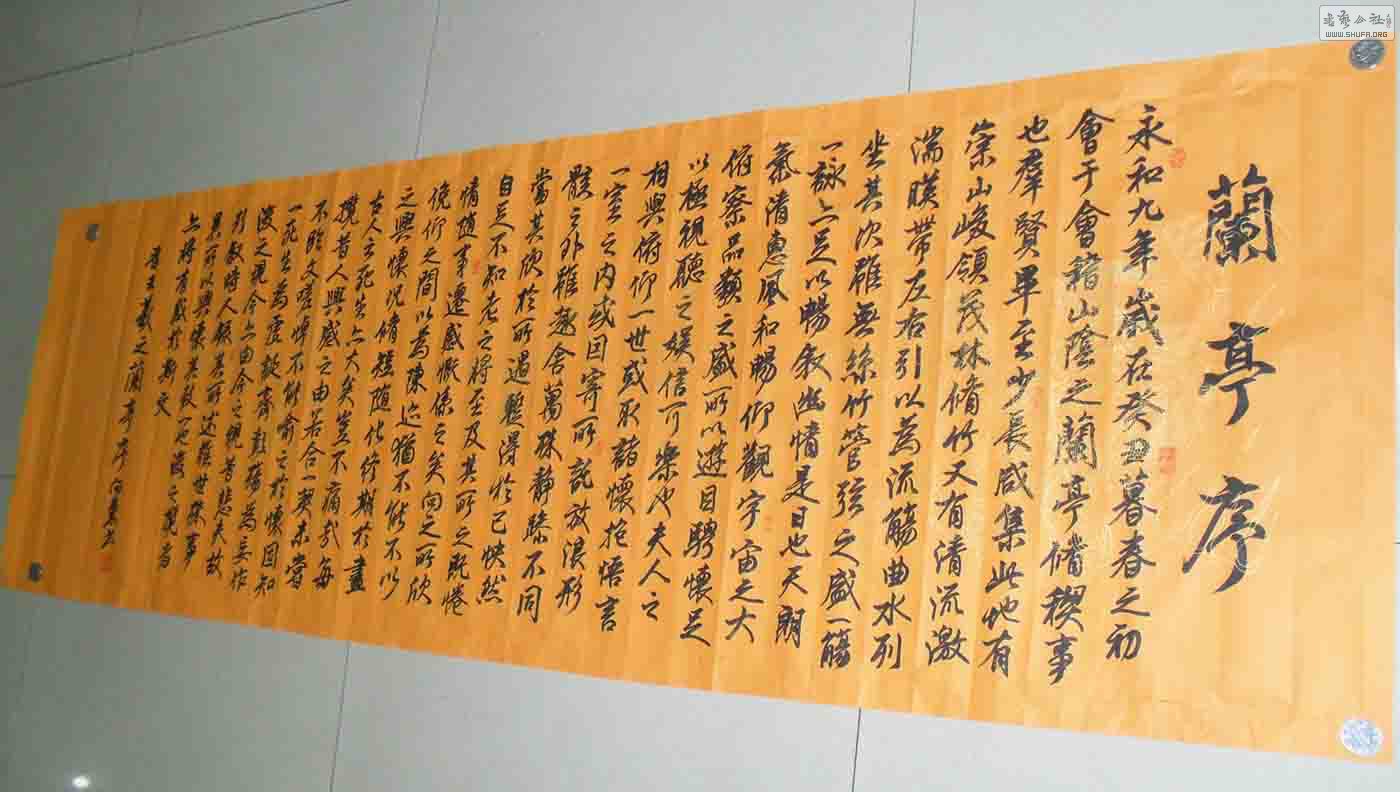 蘭亭序
永和九年歲在癸丑暮春之初
會于會稽山陰之蘭亭脩稧事
也羣賢畢至少長咸集此地有
崇山峻領茂林脩竹又有清流激
湍暎帶左右引以為流觴曲水列
坐其次雖無絲竹管弦之盛一觴
一詠亦足以暢敘幽情是日也天朗
氣清惠風和暢仰觀宇宙之大
俯察品類之盛所以遊目騁懷足
以極視聽之娛信可樂也夫人之
相與俯仰一世或取諸懷抱悟言
一室之內或因寄所託放浪形
骸之外雖趣舍萬殊靜躁不同
當其欣於所遇暫得於己怏然
自足不知老之將至及其所之既惓
情隨事遷感慨係之矣向之所欣
俛仰之間以為陳迹猶不能不以
之興懷況脩短隨化終期於盡
古人云死生亦大矣豈不痛哉每
攬昔人興感之由若合一契未嘗
不臨文嗟悼不能喻之於懷固知
一死生為虛誕齊彭殤為妄作
後之視今亦由今之視昔悲夫故
列敘時人錄其所述雖世殊事
異所以興懷其致一也後之覽者
亦將有感於斯文
晉王羲之蘭亭序
书艺公社
WWW.SHUFA.ORG